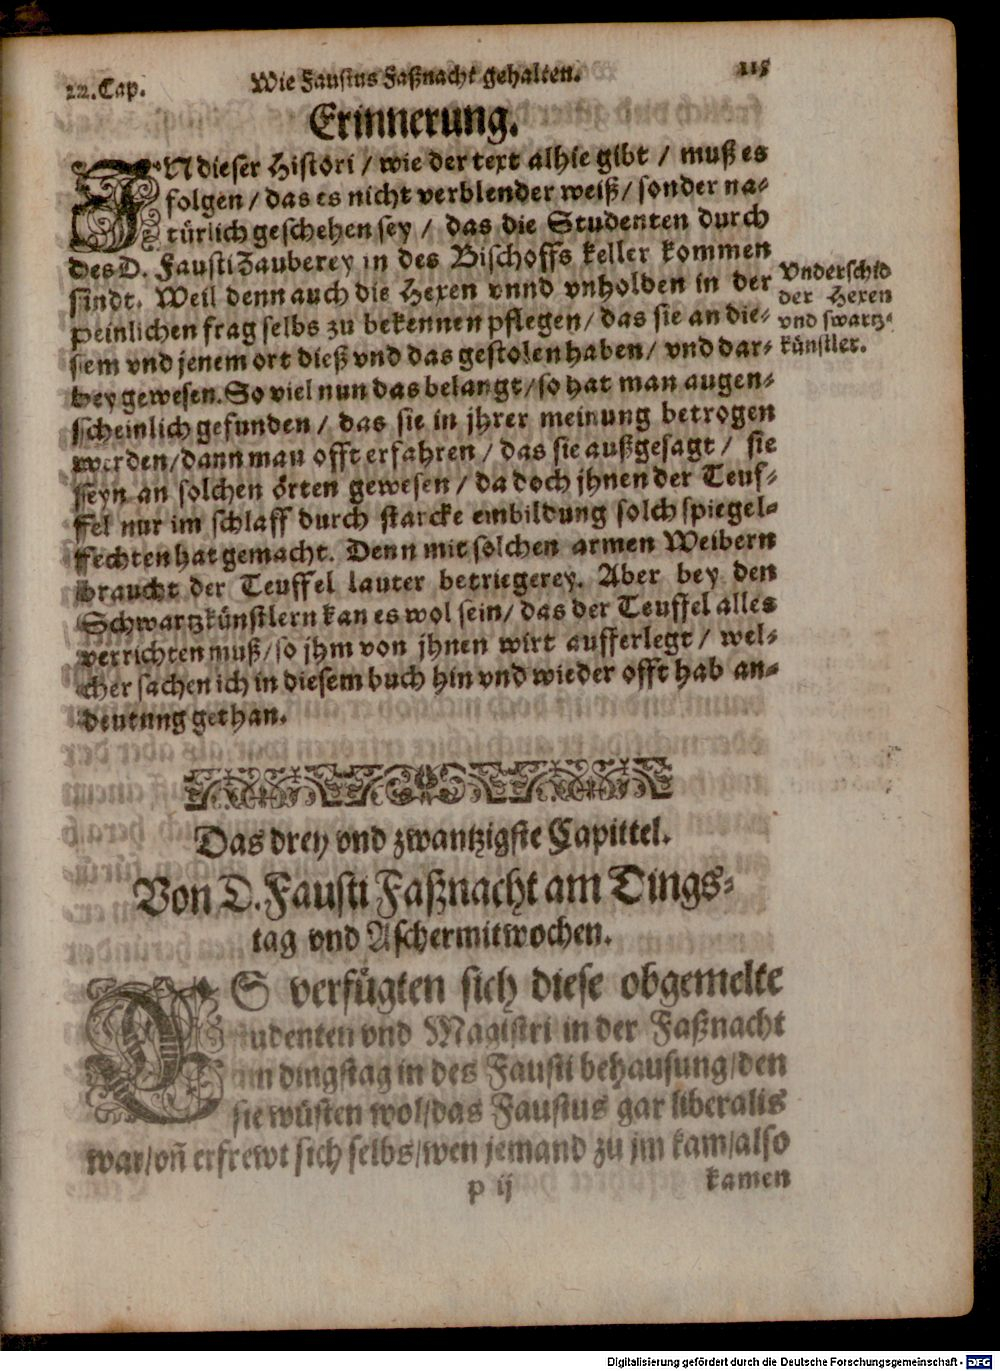 22. Cap.
Wie Faustus Faßnacht gehalten.
115
Erinnerung.
IN dieser Histori / wie der text alhie gibt / muß es
folgen / das es nicht verblender weiß / sonder na-
türlich geschehen sey / das die Studenten durch
des D. Fausti Zauberey in des Bischoffs keller kommen
sindt. Weil denn auch die Hexen vnnd vnholden in der
peinlichen frag selbs zu bekennen pflegen / das sie an die-
sem vnd jenem ort dieß vnd das gestolen haben / vnd dar-
bey gewesen. So viel nun das belangt / so hat man augen-
scheinlich gefunden / das sie in jhrer meinung betrogen
werden / dann man offt erfahren / das sie außgesagt / sie
seyn an solchen örten gewesen / da doch jhnen der Teuf-
fel nur im schlaff durch starcke einbildung solch spiegel-
fechten hat gemacht. Denn mit solchen armen Weibern
braucht der Teuffel lauter betriegerey. Aber bey den
Schwartzkünstlern kan es wol sein / das der Teuffel alles
verrichten muß / so jhm von jhnen wirt aufferlegt / wel-
cher sachen ich in diesem buch hin vnd wieder offt hab an-
deutung gethan.
Vnderschid
der Hexen
vnd swartz-
künstler.
Das drey vnd zwantzigste Capittel.
Von D. Fausti Faßnacht am Dings-
tag vnd Aschermitwochen.
ES verfügten sich diese obgemelte
Studenten vnd Magistri in der Faßnacht
am dingstag in des Fausti behausung / den
sie wüsten wol / das Faustus gar liberalis
war / vñ erfrewt sich selbs / wen jemand zu jm kam / also
p ij
kamen
Digitalisierung gefördert durch die Deutsche Forschungsgemeinschaft - DFG